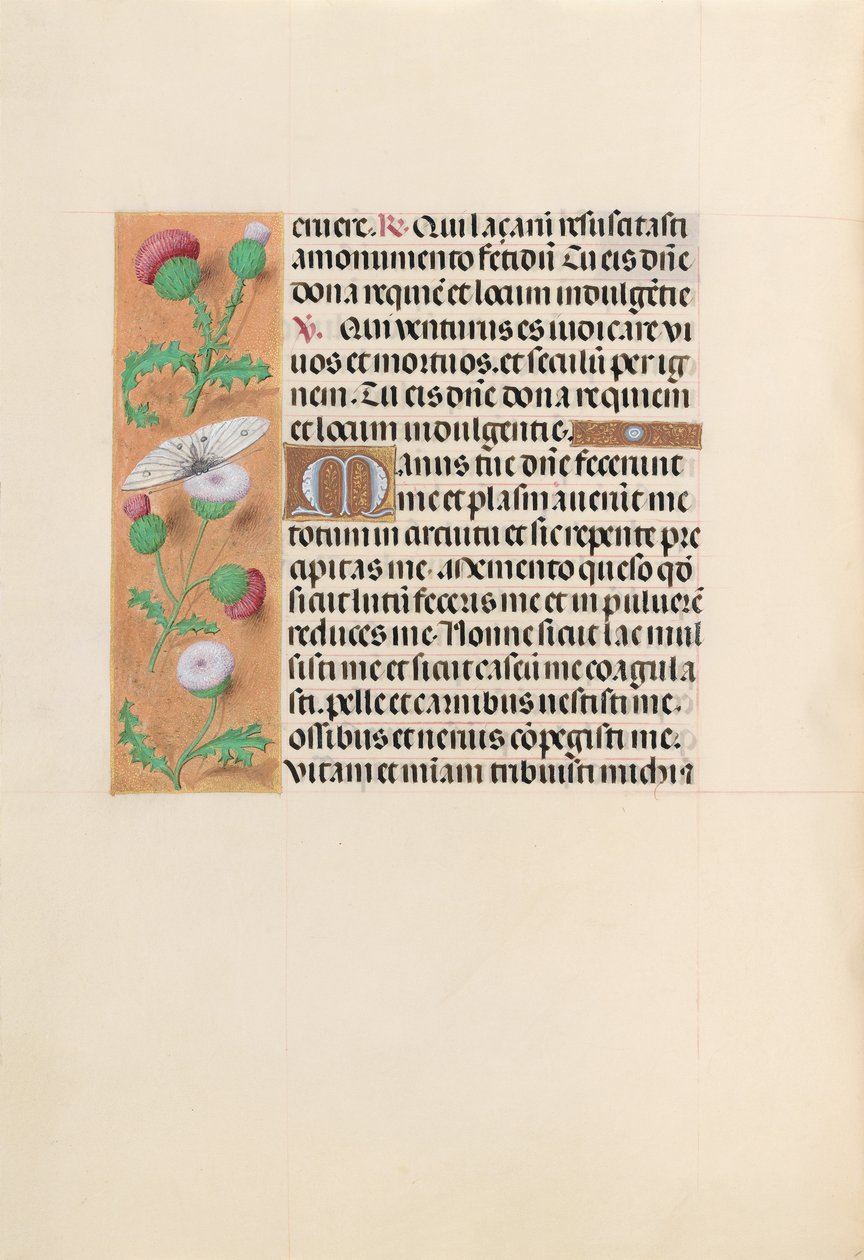 eruere. R. Qui laçarū resuscitasti
a monumento fetidū Tu eis dn̄e
dona requiē et locum indulgētie
V. Qui venturus es iudicare vi
uos et mortuos. et seculū per ig
nem. Tu eis dn̄e dona requiem
et locum indulgentie.
Manus tue dn̄e fecerunt
me et plasmauerūt me
totum in circuitu et sic repente pre
cipitas me. Memento queso qd̄
sicut lutū feceris me et in puluerē
reduces me. Nonne sicut lac mul
sisti me et sicut caseū me coagula
sti. pelle et carnibus uestisti me.
ossibus et neruis cōpegisti me.
vitam et mīam tribuisti michi